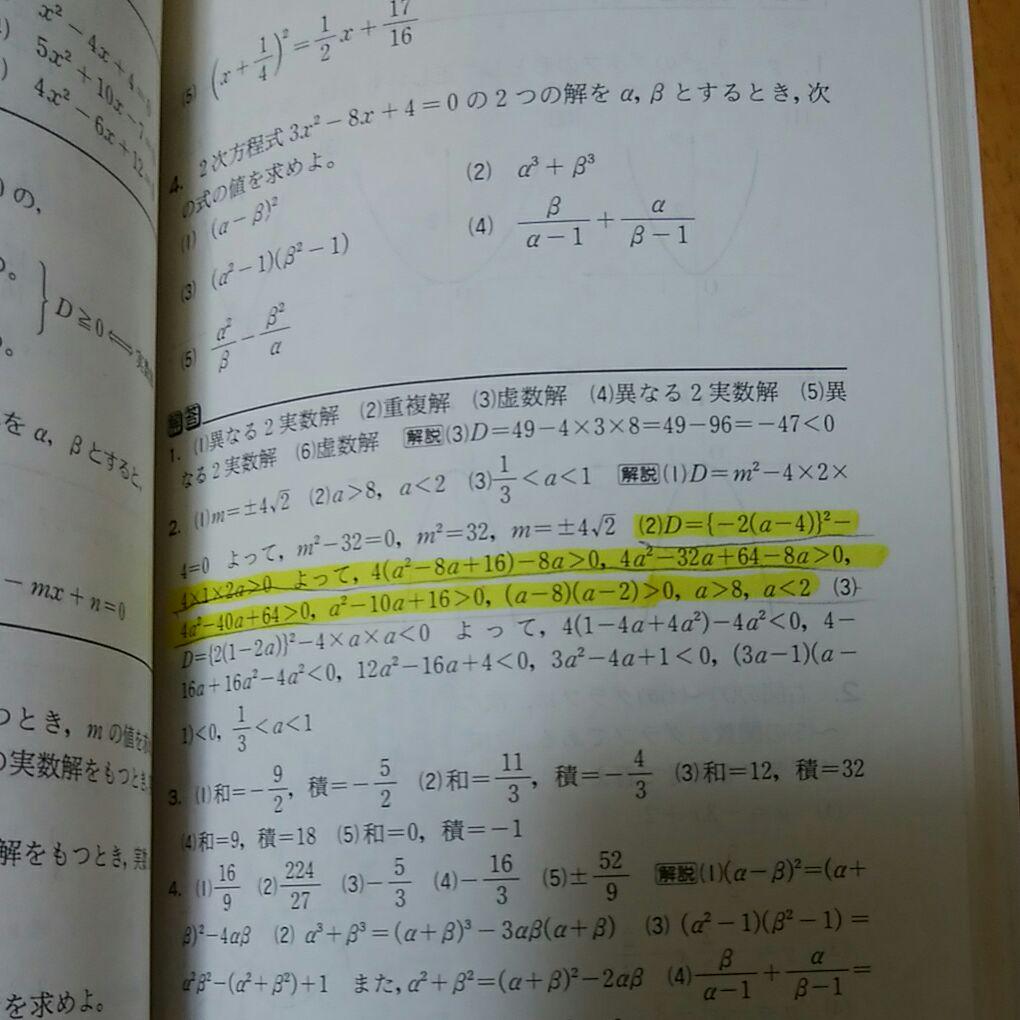 x² − 4x + 4 = 0
5x² + 10x − 7
4x² − 6x + 12
の,
D ≧ 0 ⟺ 実数
を α, β とすると,
− mx + n = 0
つとき, m の値を求
の実数解をもつとき,
解をもつとき, 実数
を求めよ。
(5) (x + 1/4)² = 1/2 x + 17/16
4. 2次方程式 3x² − 8x + 4 = 0 の2つの解を α, β とするとき, 次
の式の値を求めよ。
(1) (α − β)² (2) α³ + β³
(3) (α² − 1)(β² − 1) (4) β/(α − 1) + α/(β − 1)
(5) α²/β − β²/α
解答
1. (1)異なる2実数解 (2)重複解 (3)虚数解 (4)異なる2実数解 (5)異
なる2実数解 (6)虚数解 解説(3)D=49−4×3×8=49−96=−47<0
2. (1)m=±4√2 (2)a>8, a<2 (3)1/3<a<1 解説(1)D=m²−4×2×
4=0 よって, m²−32=0, m²=32, m=±4√2 (2)D={−2(a−4)}²−
4×1×2a>0 よって, 4(a²−8a+16)−8a>0, 4a²−32a+64−8a>0,
4a²−40a+64>0, a²−10a+16>0, (a−8)(a−2)>0, a>8, a<2 (3)
D={2(1−2a)}²−4×a×a<0 よって, 4(1−4a+4a²)−4a²<0, 4−
16a+16a²−4a²<0, 12a²−16a+4<0, 3a²−4a+1<0, (3a−1)(a−
1)<0, 1/3<a<1
3. (1)和=−9/2, 積=−5/2 (2)和=11/3, 積=−4/3 (3)和=12, 積=32
(4)和=9, 積=18 (5)和=0, 積=−1
4. (1)16/9 (2)224/27 (3)−5/3 (4)−16/3 (5)±52/9 解説(1)(α−β)²=(α+
β)²−4αβ (2) α³+β³=(α+β)³−3αβ(α+β) (3) (α²−1)(β²−1)=
α²β²−(α²+β²)+1 また, α²+β²=(α+β)²−2αβ (4)β/(α−1)+α/(β−1)=